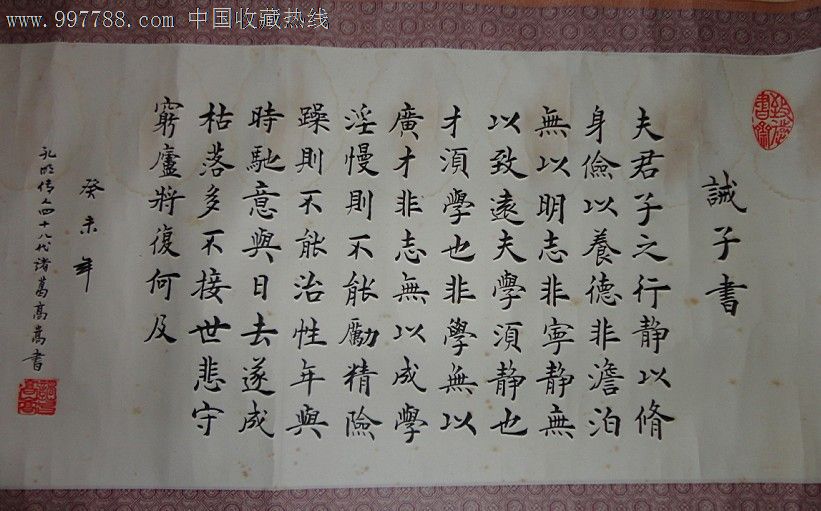 www.997788.com 中国收藏热线
誡子書
夫君子之行静以脩
身儉以養德非澹泊
無以明志非寧静無
以致遠夫學須静也
才須學也非學無以
廣才非志無以成學
淫慢則不能勵精險
躁則不能治性年與
時馳意與日去遂成
枯落多不接世悲守
窮廬將復何及
癸未年
孔明傳人四十八代諸葛高嵩書